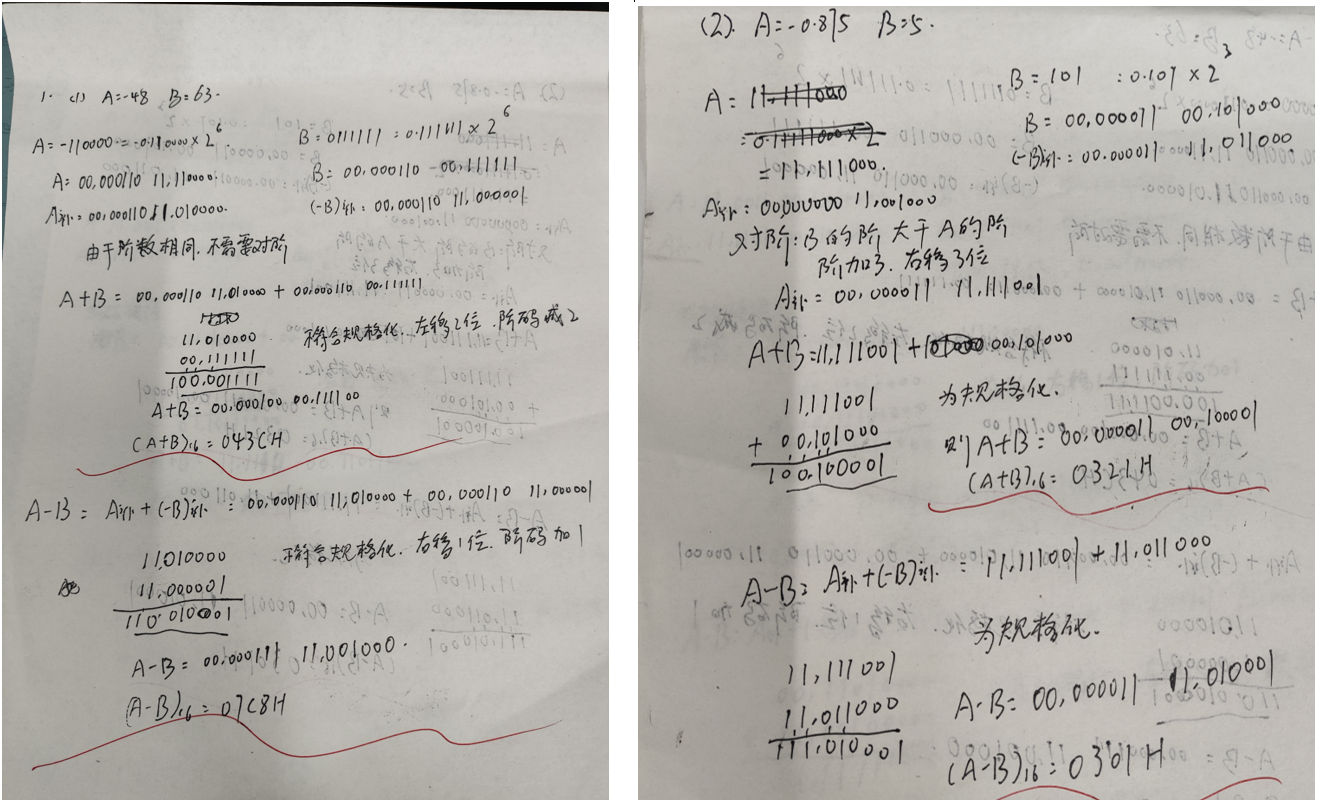 1. (1) A=-48 B=63.
A=-110000=-0.110000×2^6
B=0111111=0.111111×2^6
A=00,000110 11,110000.
B=00,000110 00.111111
A补=00,000110 11.010000.
(-B)补=00,000110 11,000001
由于阶数相同.不需要对阶
A+B=00,000110 11,010000+00,000110 00.111111
11,010000
00,111111
100.001111
不符合规格化.左移2位.阶码减2
A+B=00,000100 00.111100
(A+B)16=043CH
A-B=A补+(-B)补=00,000110 11,010000+00,000110 11,000001
11010000
11.000001
110.010001
不符合规格化.右移1位.阶码加1
A-B=00,000111 11,001000.
(A-B)16=07C8H
(2). A=-0.875 B=5.
A=11.111000
=0.1111000×2
=11,111000.
B=101=0.101×2^3
B=00,000011 00.101000
(-B)补=00.000011 11,011000
A补=00,000000 11,001000
对阶:B的阶大于A的阶
阶加3.右移3位
A补=00,000011 11,111001
A+B=11,111001+00,101000
11,111001
+ 00,101000
100,100001
为规格化.
则A+B=00,000011 00,100001
(A+B)16=0321H
A-B=A补+(-B)补=11,111001+11,011000
为规格化.
11,111001
11,011000
111,010001
A-B=00,000011 11,010001
(A-B)16=03 H